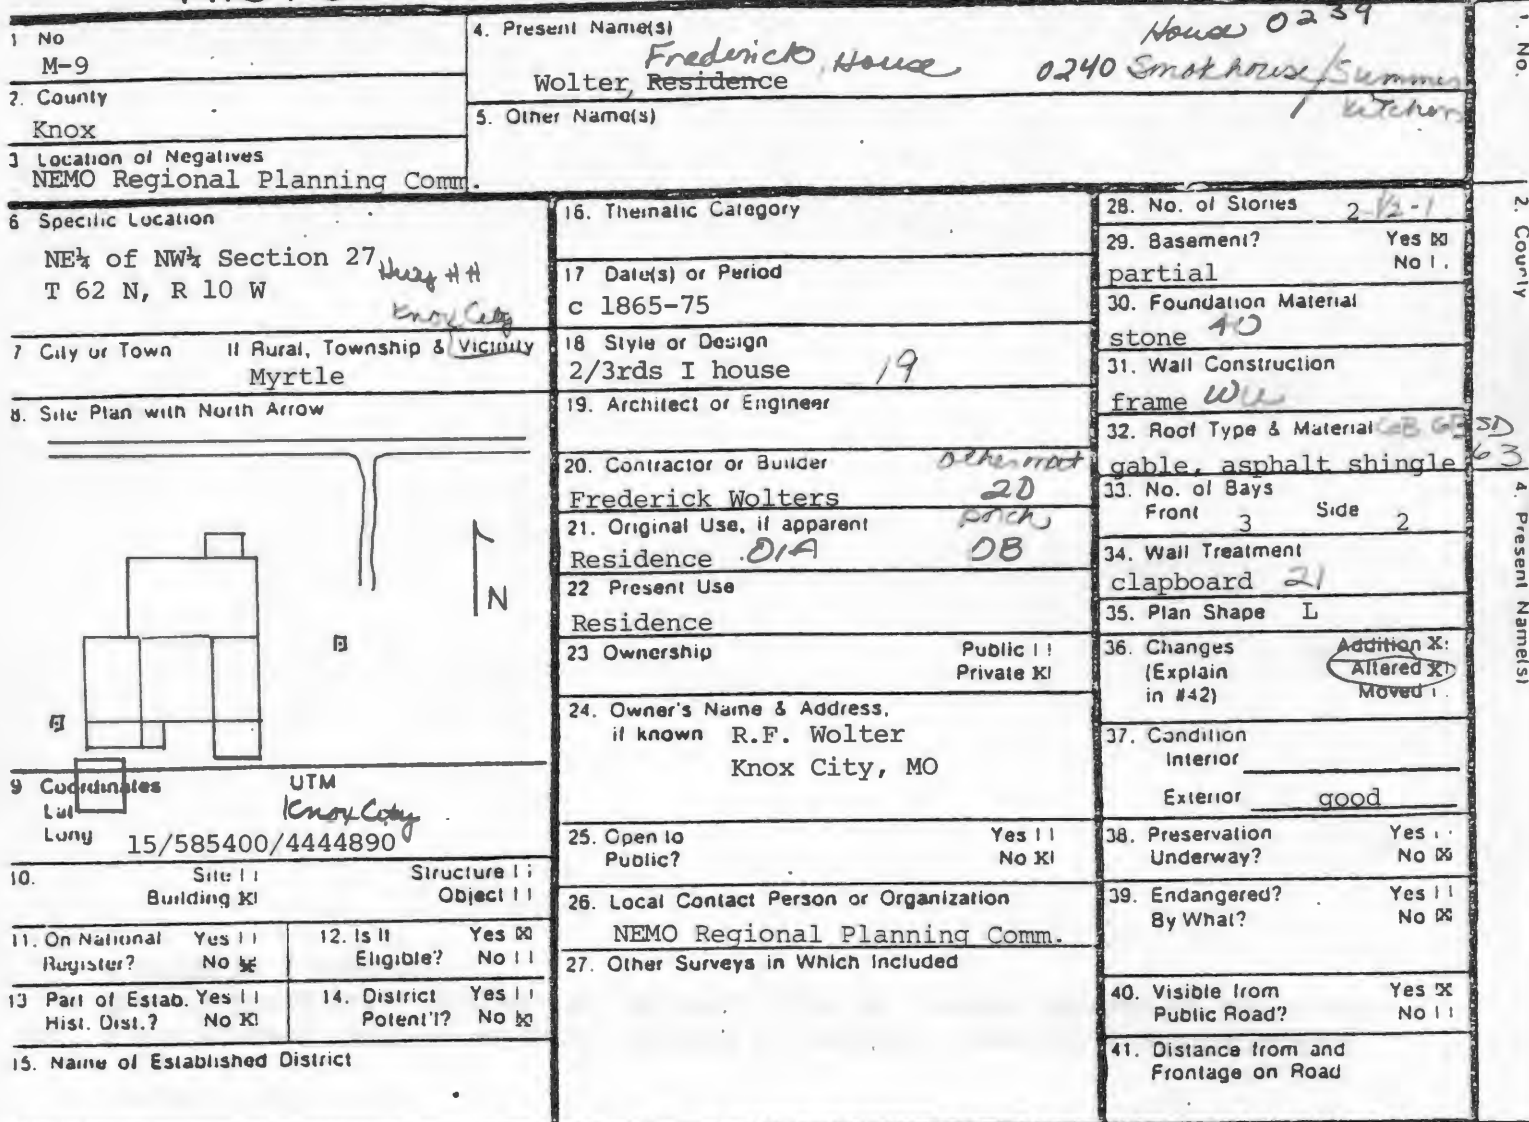 1 No
M-9
2. County
Knox
3 Location of Negatives
NEMO Regional Planning Comm.
4. Present Name(s)
House 0239
Frederick, House
Wolter, Residence
0240 Smokhouse/Summer
Kitchen
5. Other Name(s)
6 Specific Location
NE¼ of NW¼ Section 27
T 62 N, R 10 W
HH
Knox City
7 City or Town If Rural, Township & Vicinity
Myrtle
8. Site Plan with North Arrow
N
9 Coordinates UTM
Lat
Knox City
Long 15/585400/4444890
10. Site Structure
Building X Object
11. On National Yes
Register? No X
12. Is It Yes X
Eligible? No
13 Part of Estab. Yes
Hist. Dist.? No X
14. District Yes
Potent'l? No X
15. Name of Established District
16. Thematic Category
17 Date(s) or Period
c 1865-75
18 Style or Design
2/3rds I house 19
19. Architect or Engineer
20. Contractor or Builder
Frederick Wolters 20
21. Original Use, if apparent
porch
Residence 01A OB
22 Present Use
Residence
23 Ownership Public
Private X
24. Owner's Name & Address,
if known R.F. Wolter
Knox City, MO
25. Open to Yes
Public? No X
26. Local Contact Person or Organization
NEMO Regional Planning Comm.
27. Other Surveys in Which Included
28. No. of Stories 2 ½-1
29. Basement? Yes X
No
partial
30. Foundation Material
stone 40
31. Wall Construction
frame
32. Roof Type & Material GB SD
gable, asphalt shingle 63
33. No. of Bays
Front 3 Side 2
34. Wall Treatment
clapboard 21
35. Plan Shape L
36. Changes Addition X
(Explain Altered X
in #42) Moved
37. Condition
Interior
Exterior good
38. Preservation Yes
Underway? No X
39. Endangered? Yes
By What? No X
40. Visible from Yes X
Public Road? No
41. Distance from and
Frontage on Road
1. No.
2. County
4. Present Name(s)